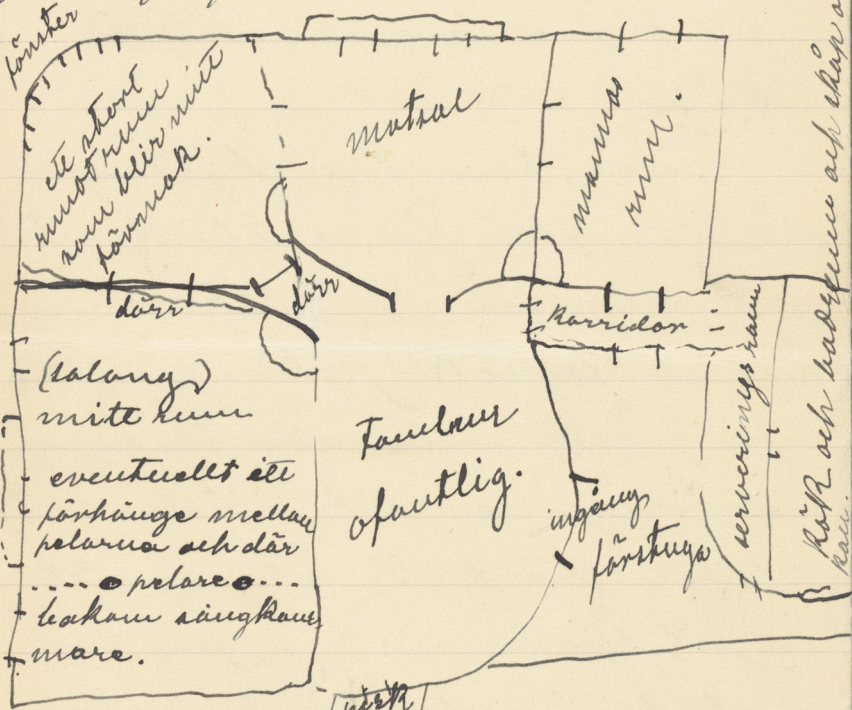 fönster
ett stort
rundt rum
som blir mitt
förmak.
matsal
mammas
rum.
dörr
dörr
Korridor
(salong)
mitt rum
eventuellt ett
förhänge mellan
pelarna och där
....●pelare●...
bakom sängkam-
mare.
Tambur
ofantlig.
ingång
förstuga
serveringsrum
Kök och badrum och skåp